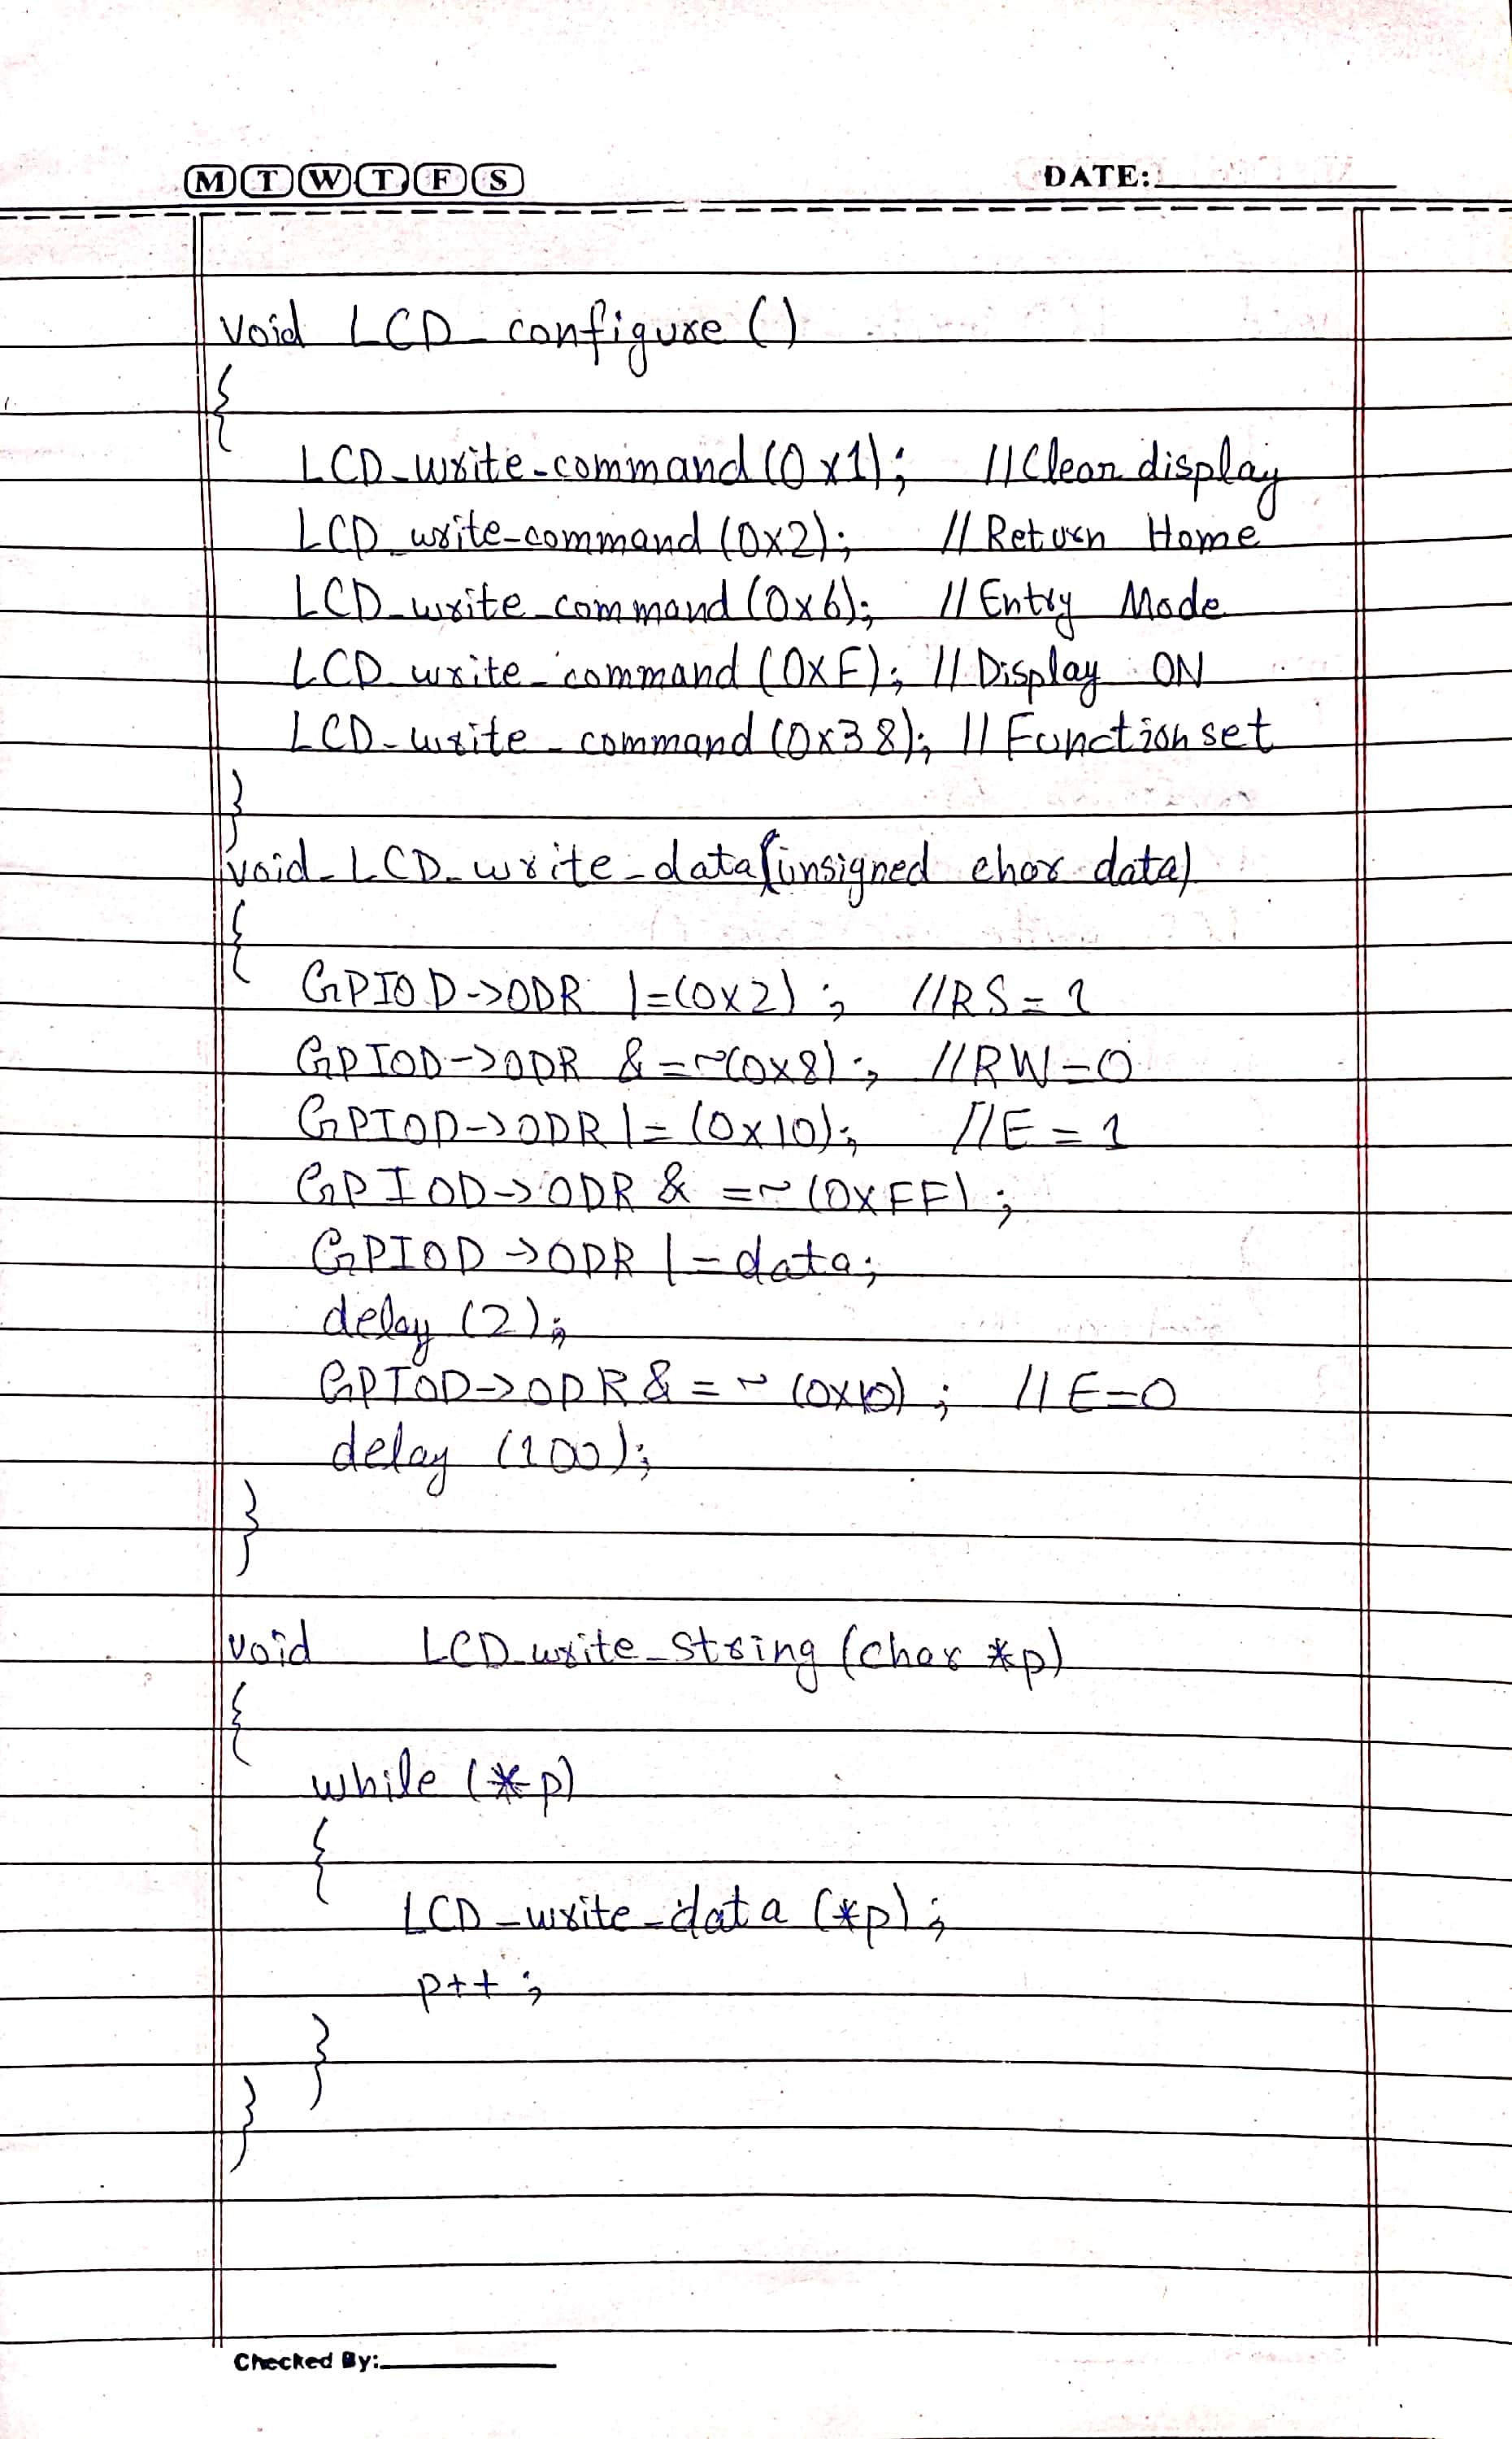 M T W T F S
DATE:
void LCD_configure ()
{
LCD_write_command (0x1); //Clear display
LCD_write_command (0x2); // Return Home
LCD_write_command (0x6); // Entry Mode
LCD_write_command (0xF); // Display ON
LCD_write_command (0x38); // Function set
}
void LCD_write_data (unsigned char data)
{
GPIOD->ODR |=(0x2); //RS=1
GPIOD->ODR &=~(0x8); //RW=0
GPIOD->ODR |= (0x10); //E=1
GPIOD->ODR & =~ (0xFF);
GPIOD->ODR |=data;
delay (2);
GPIOD->ODR & = ~ (0x10); // E=0
delay (100);
}
void LCD_write_string (char *p)
{
while (*p)
{
LCD_write_data (*p);
p++;
}
}
Checked By: